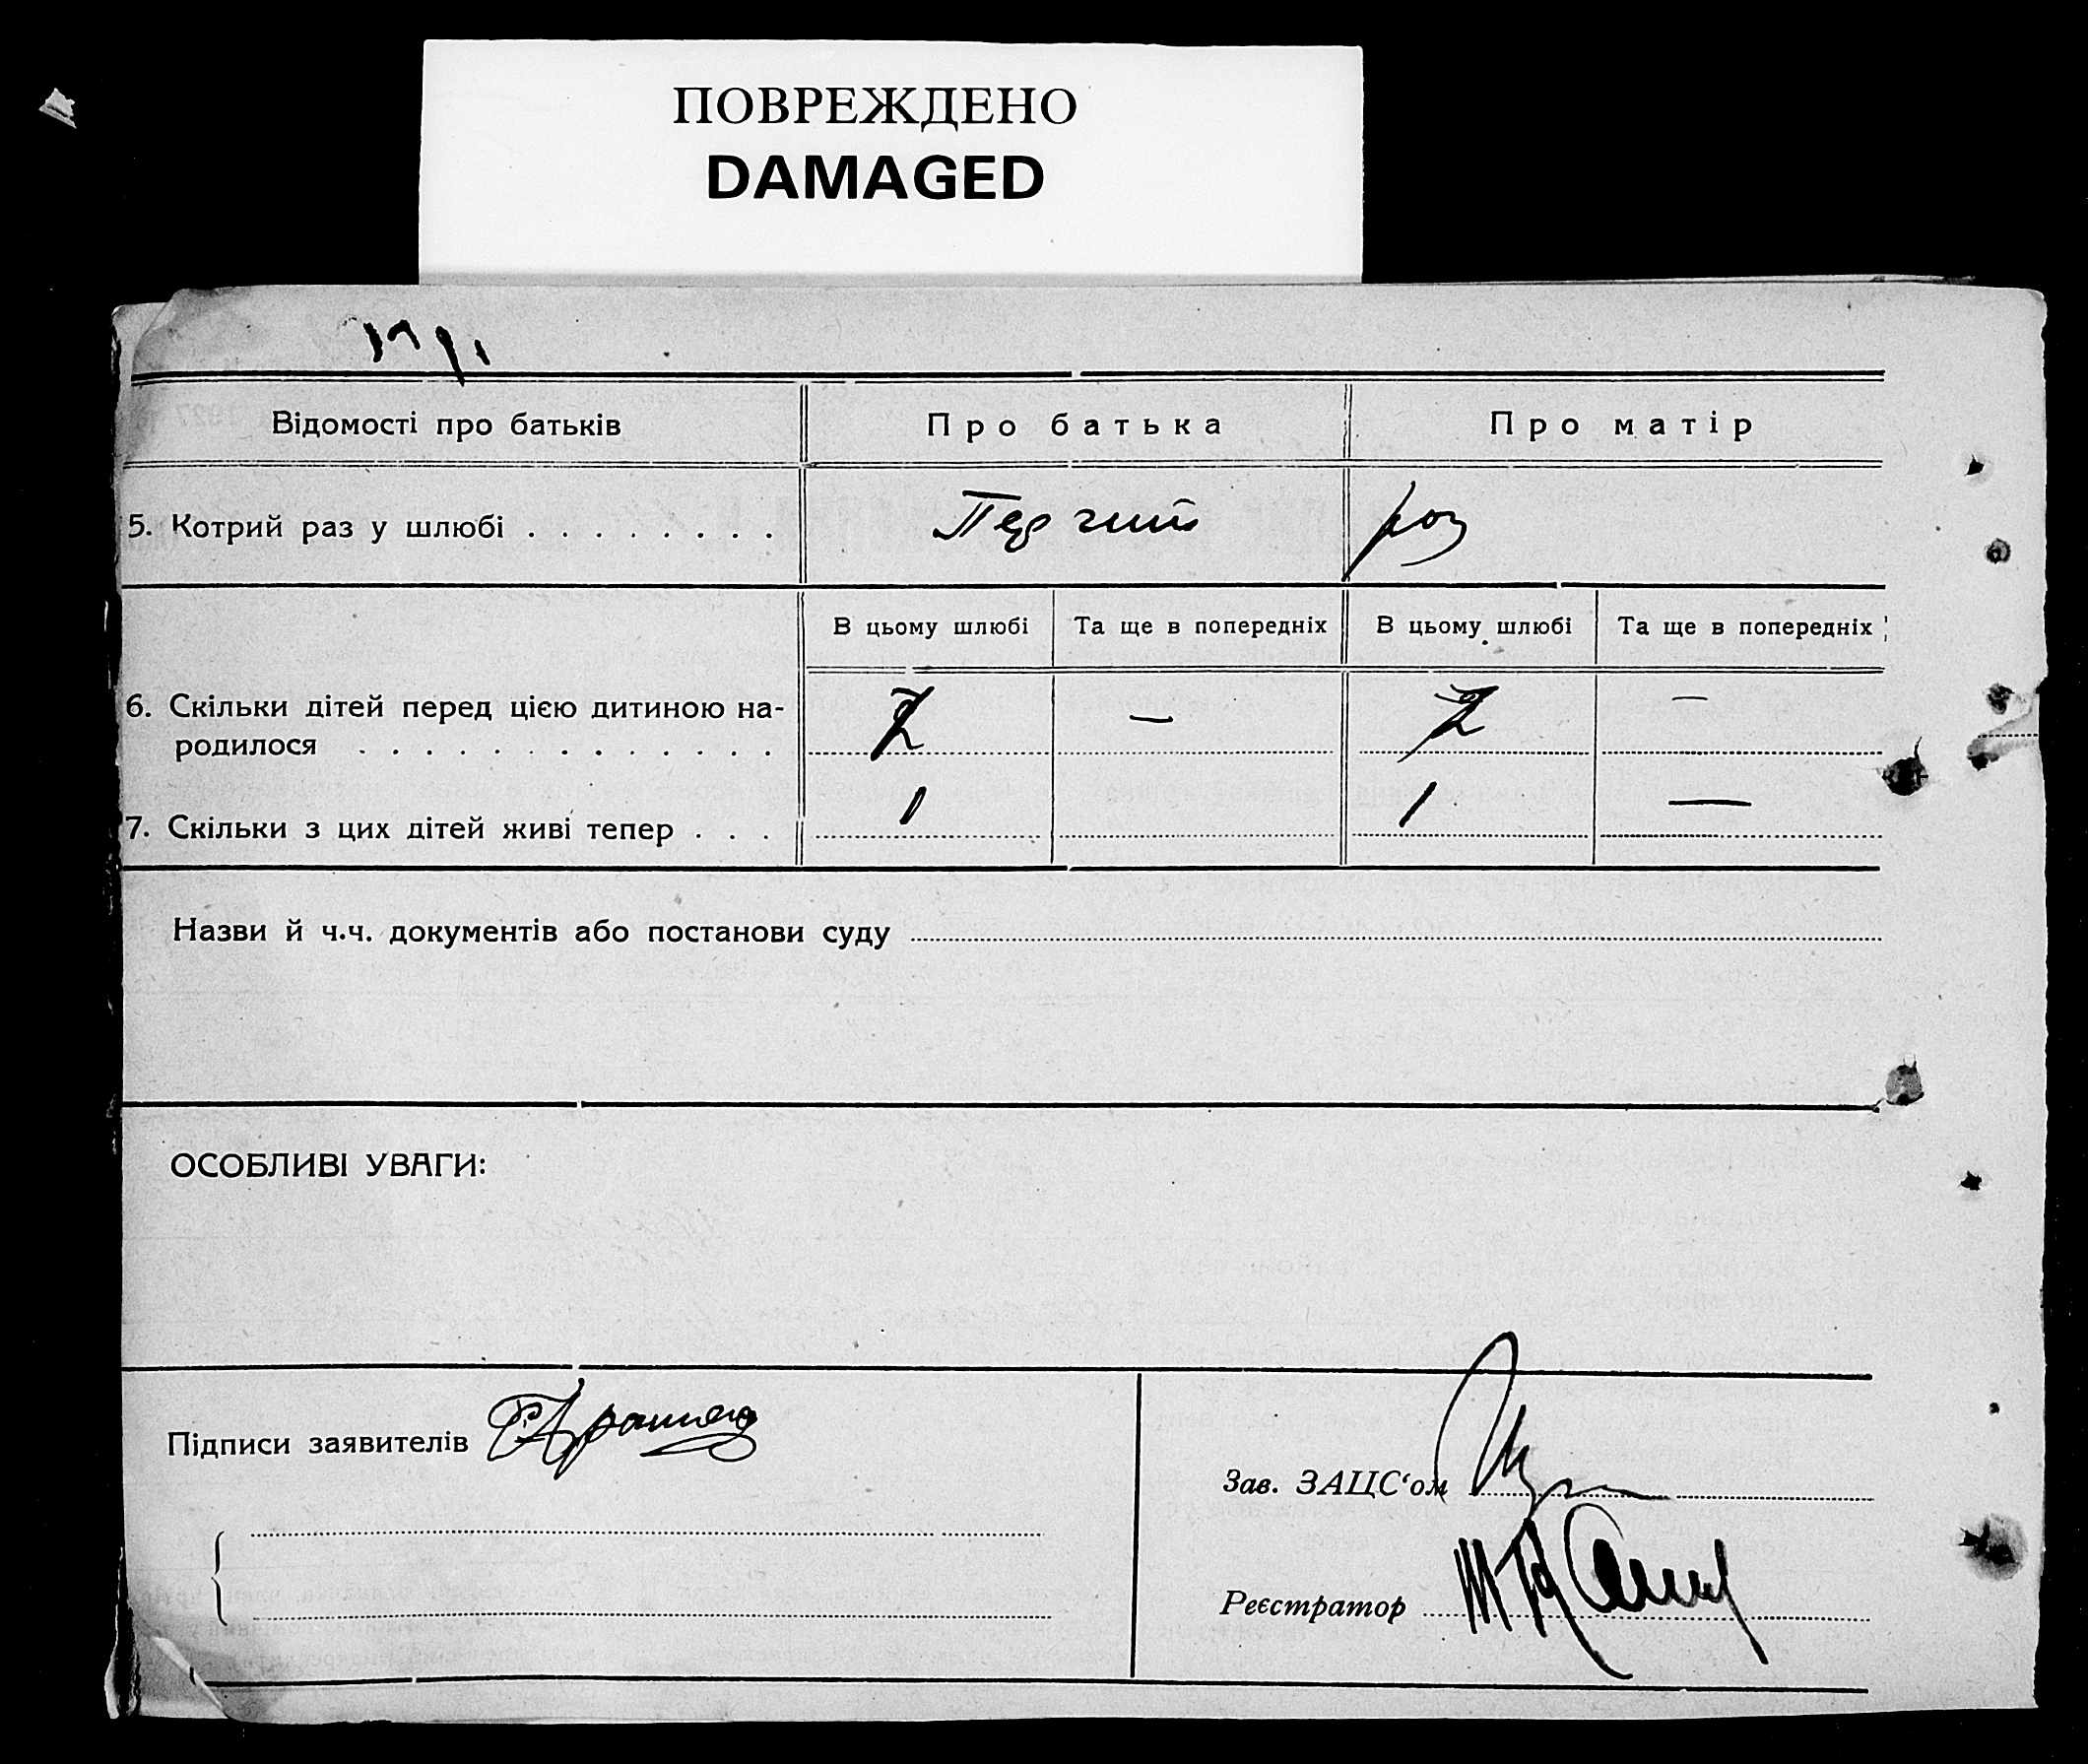 ПОВРЕЖДЕНО
DAMAGED
Відомості про батьків Про батька Про матір
5. Котрий раз у шлюбі . . . . . . . . Перший раз
В цьому шлюбі Та ще в попередніх В цьому шлюбі Та ще в попередніх
6. Скільки дітей перед цією дитиною на-
родилося . . . . . . . . . . . . . 2 — 2 —
7. Скільки з цих дітей живі тепер . . . 1 1 —
Назви й ч.ч. документів або постанови суду
ОСОБЛИВІ УВАГИ:
Підписи заявителів
Зав. ЗАЦС‘ом
Реєстратор